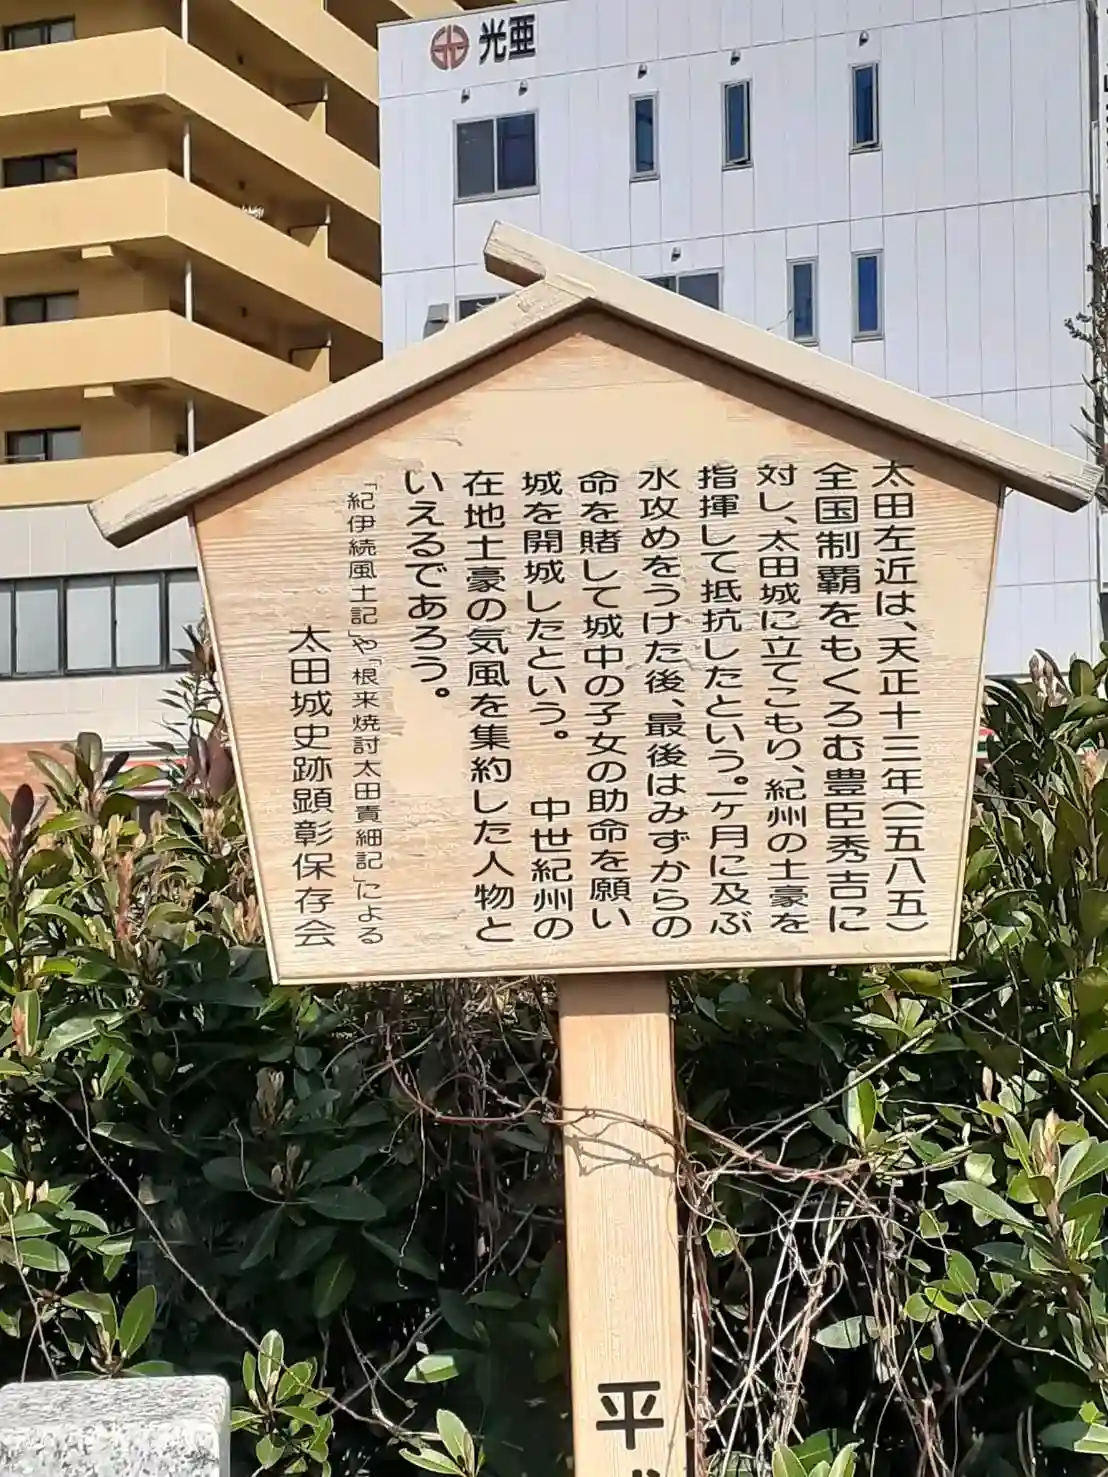 光亜
太田左近は、天正十三年(一五八五)
全国制覇をもくろむ豊臣秀吉に
対し、太田城に立てこもり、紀州の土豪を
指揮して抵抗したという。一ヶ月に及ぶ
水攻めをうけた後、最後はみずからの
命を賭して城中の子女の助命を願い
城を開城したという。 中世紀州の
在地土豪の気風を集約した人物と
いえるであろう。
「紀伊続風土記」や「根来焼討太田責細記」による
太田城史跡顕彰保存会
平